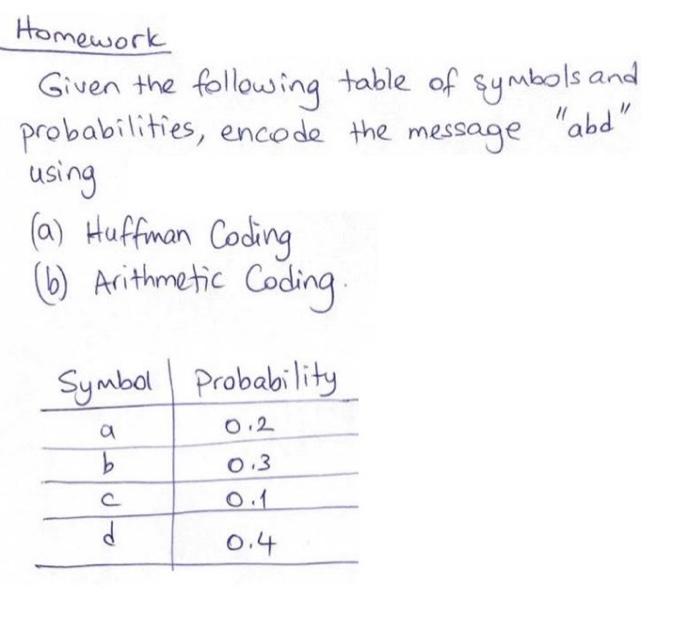 Homework
Given the following table of symbols and
probabilities, encode the message "abd"
using
(a) Huffman Coding
(b) Arithmetic Coding.
Symbol Probability
a 0.2
b 0.3
c 0.1
d 0.4